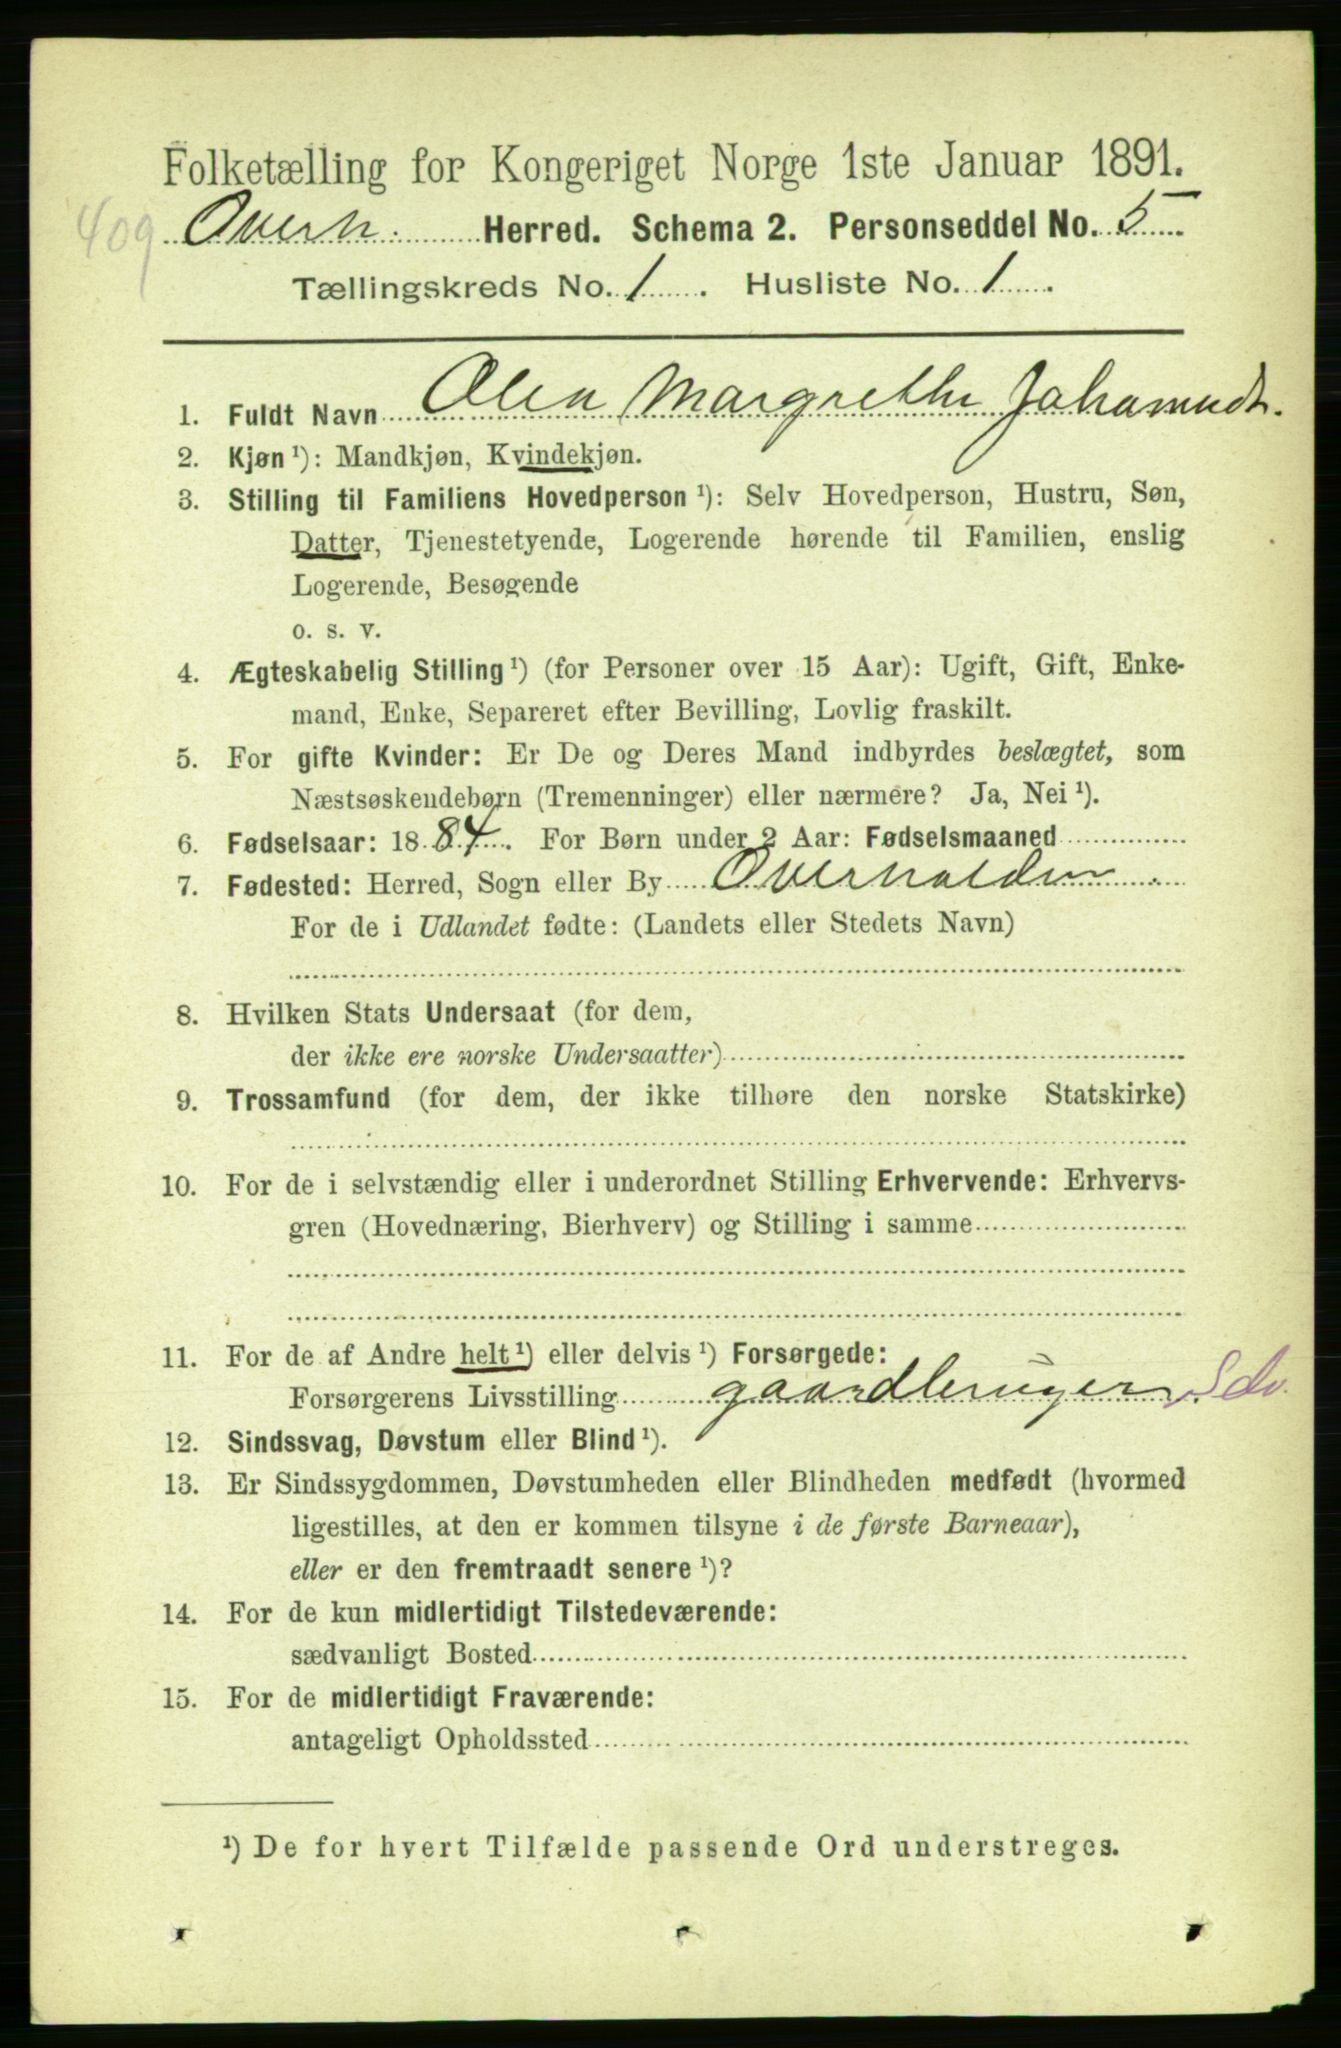 Folketælling for Kongeriget Norge 1ste Januar 1891.
409 Overh. Herred. Schema 2. Personseddel No. 5
Tællingskreds No. 1. Husliste No. 1.
1. Fuldt Navn Olea Margrethe Johansdt.
2. Kjøn ¹): Mandkjøn, Kvindekjøn.
3. Stilling til Familiens Hovedperson ¹): Selv Hovedperson, Hustru, Søn,
Datter, Tjenestetyende, Logerende hørende til Familien, enslig
Logerende, Besøgende
o. s. v.
4. Ægteskabelig Stilling ¹) (for Personer over 15 Aar): Ugift, Gift, Enke-
mand, Enke, Separeret efter Bevilling, Lovlig fraskilt.
5. For gifte Kvinder: Er De og Deres Mand indbyrdes beslægtet, som
Næstsøskendebørn (Tremenninger) eller nærmere? Ja, Nei ¹).
6. Fødselsaar: 1884. For Børn under 2 Aar: Fødselsmaaned
7. Fødested: Herred, Sogn eller By Overhalden
For de i Udlandet fødte: (Landets eller Stedets Navn)
8. Hvilken Stats Undersaat (for dem,
der ikke ere norske Undersaatter)
9. Trossamfund (for dem, der ikke tilhøre den norske Statskirke)
10. For de i selvstændig eller i underordnet Stilling Erhvervende: Erhvervs-
gren (Hovednæring, Bierhverv) og Stilling i samme
11. For de af Andre helt ¹) eller delvis ¹) Forsørgede:
Forsørgerens Livsstilling gaardbruger Selv.
12. Sindssvag, Døvstum eller Blind ¹).
13. Er Sindssygdommen, Døvstumheden eller Blindheden medfødt (hvormed
ligestilles, at den er kommen tilsyne i de første Barneaar),
eller er den fremtraadt senere ¹)?
14. For de kun midlertidigt Tilstedeværende:
sædvanligt Bosted
15. For de midlertidigt Fraværende:
antageligt Opholdssted
¹) De for hvert Tilfælde passende Ord understreges.